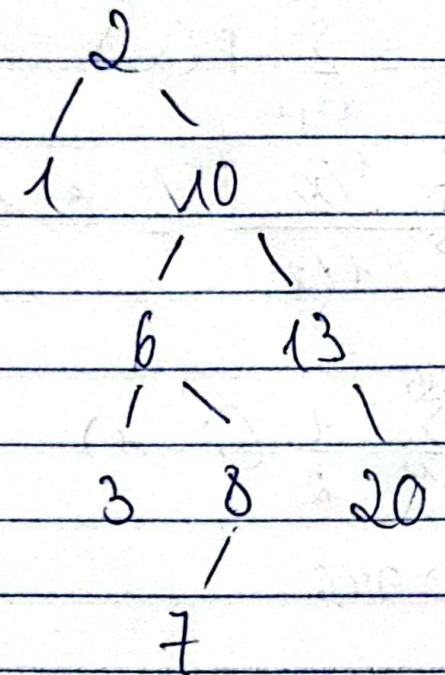 2
1 10
6 13
3 8 20
7